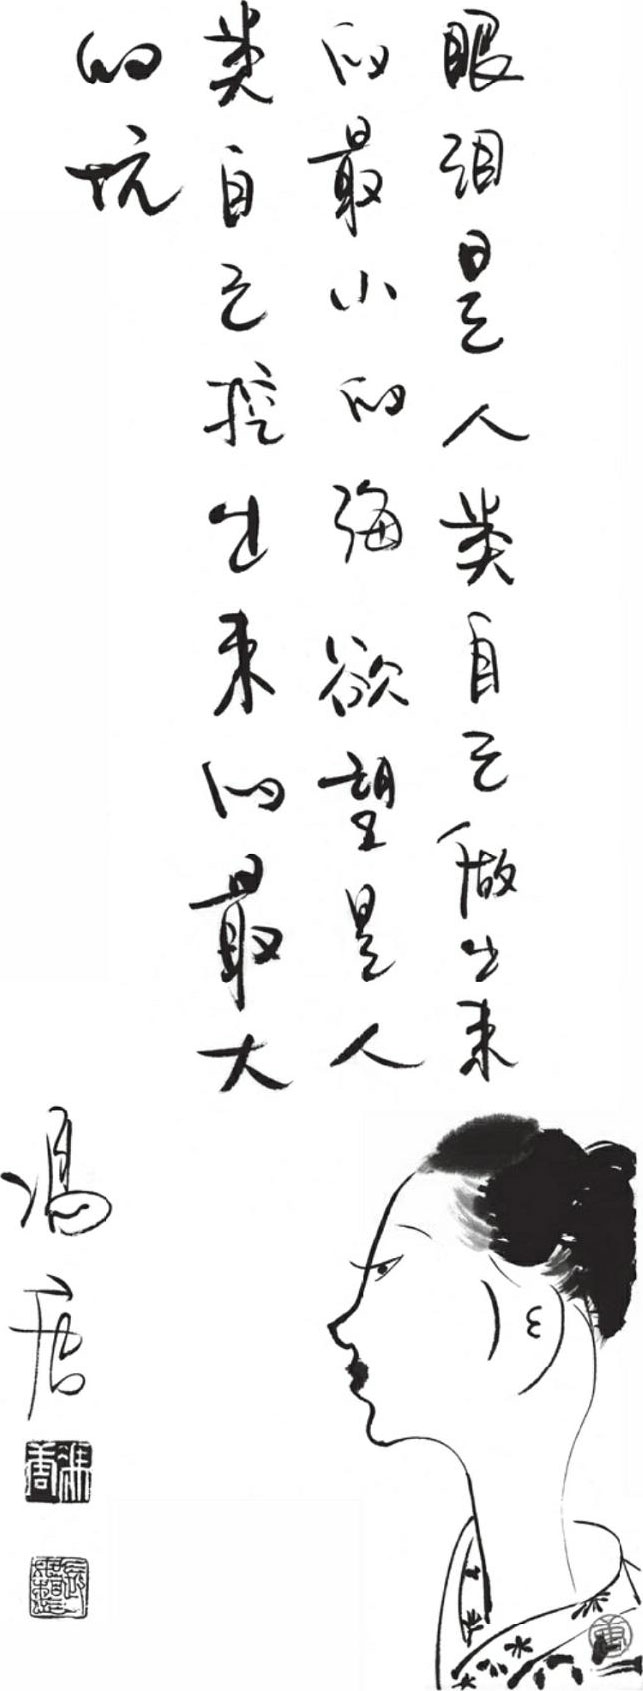 眼泪是人类自己做出来
的最小的海欲望是人
类自己挖出来的最大
的坑
冯唐
冯唐